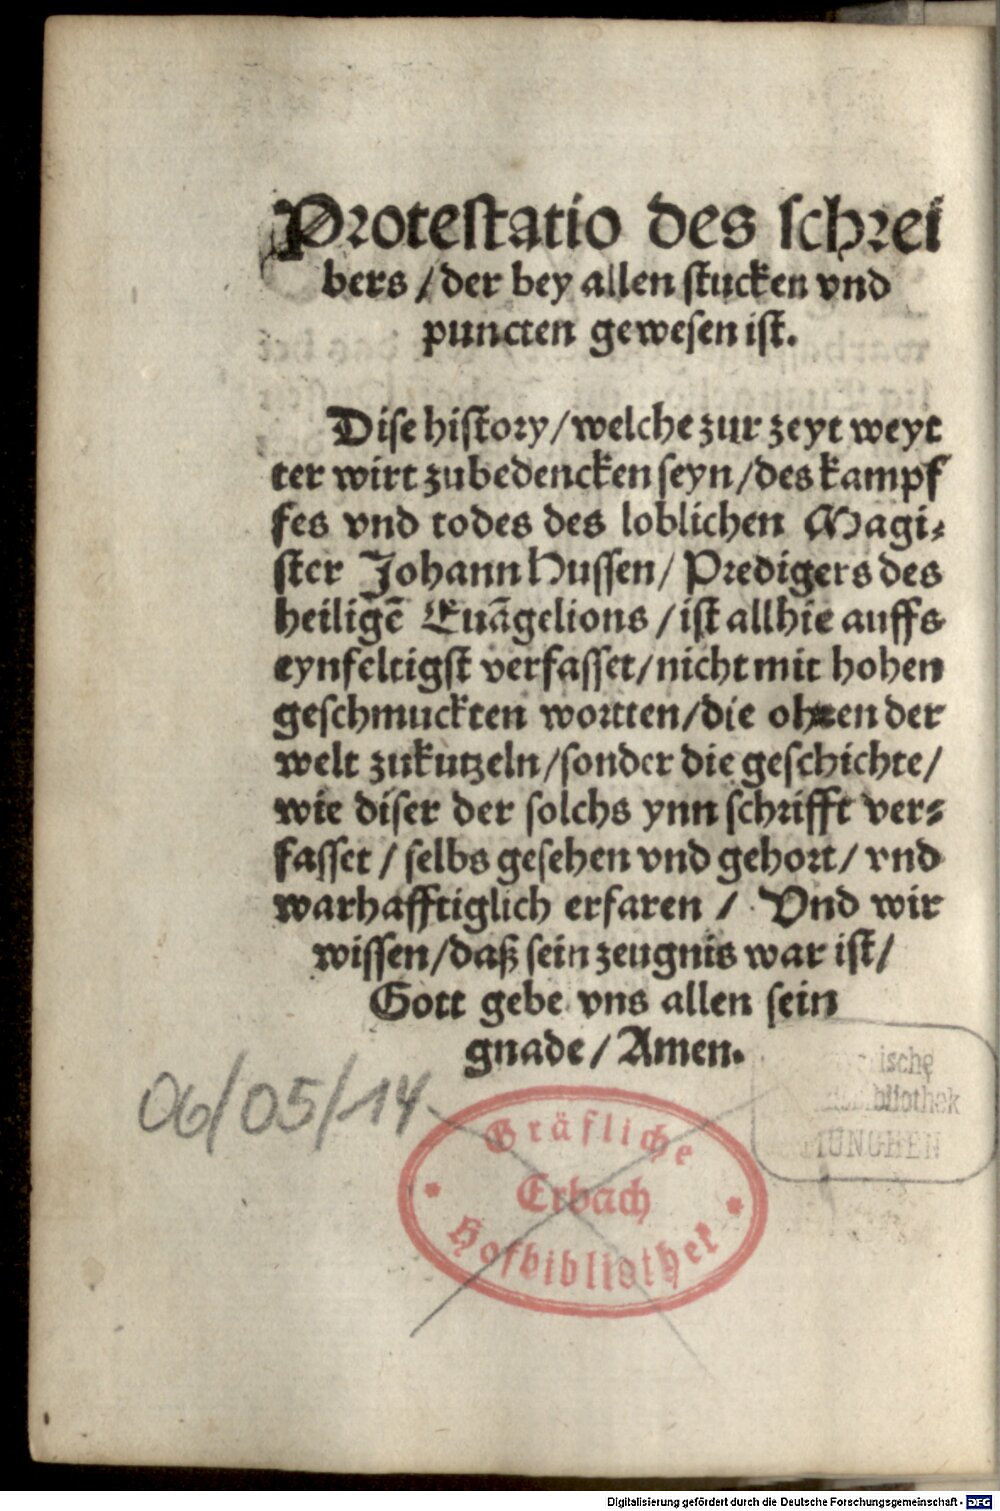 Protestatio des schrei
bers / der bey allen stucken vnd
puncten gewesen ist.
Dise history / welche zur zeyt weyt
ter wirt zubedencken seyn / des kampf
fes vnd todes des loblichen Magi-
ster Johann Hussen / Predigers des
heiligē Euāgelions / ist allhie auffs
eynfeltigst verfasset / nicht mit hohen
geschmuckten wortten / die ohren der
welt zukutzeln / sonder die geschichte /
wie diser der solchs ynn schrifft ver-
fasset / selbs gesehen vnd gehort / vnd
warhafftiglich erfaren / Vnd wir
wissen / daß sein zeugnis war ist /
Gott gebe vns allen sein
gnade / Amen.
06/05/14
Gräfliche
Erbach
Hofbibliothek
MÜNCHEN
Digitalisierung gefördert durch die Deutsche Forschungsgemeinschaft - DFG